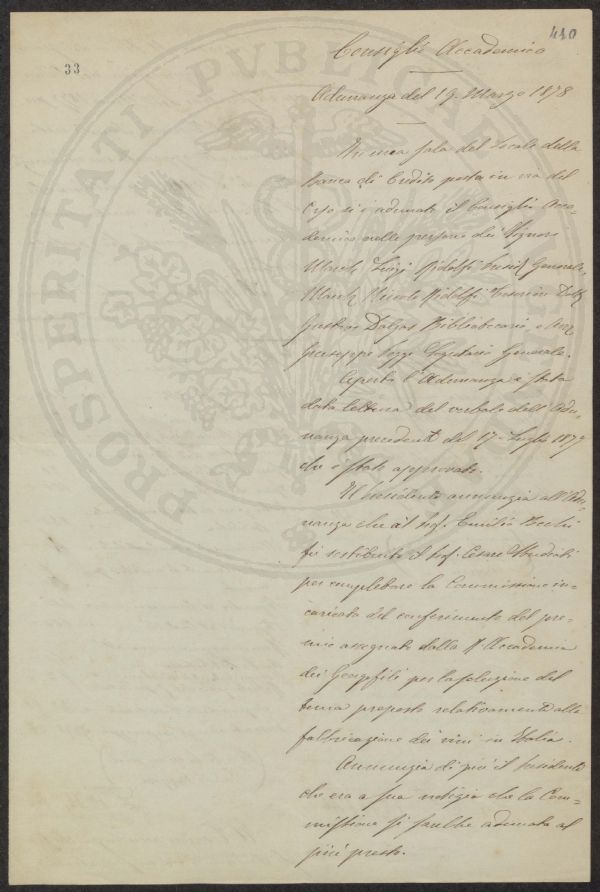 410
33
Consiglio Accademico
Adunanza del 19. Marzo 1878
In una sala del locale della
banca di Credito posta in via del
Corso si è adunato il Consiglio Acca-
demico nelle persone dei Signori
March. Luigi Ridolfi Presid. Generale,
March. Niccolò Ridolfi Tesoriere Dott.
Gustavo Dalgas Bibliotecario, e
Giuseppe Segretario Generale.
Aperta l'Adunanza è stata
data lettura del verbale dell'Adu-
nanza precedente del 17. Luglio 1877
che è stato approvato.
Il Presidente annunzia all'Adu-
nanza che al Prof. Emilio Bechi
fu sostituito il Prof. Cesare Studiati
per completare la Commissione in-
caricata del conferimento del pre-
mio assegnato dalla R. Accademia
dei Georgofili per la soluzione del
tema proposto relativamente alla
fabbricazione dei vini in Italia.
Annunzia di più il Presidente
che era a sua notizia che la Com-
missione si sarebbe adunata al
più presto.
PROSPERITATI PUBLICAE